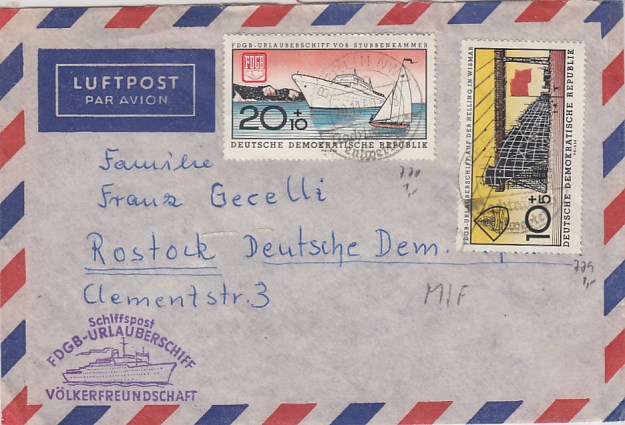 LUFTPOST
PAR AVION
FDGB-URLAUBERSCHIFF VOR STUBBENKAMMER
FDGB
20+10
DEUTSCHE DEMOKRATISCHE REPUBLIK
FDGB-URLAUBERSCHIFF AUF DER HELLING IN WISMAR
10+5
DEUTSCHE DEMOKRATISCHE REPUBLIK
Familie
Franz Gecelli
Rostock Deutsche Dem.
Clementstr. 3
MIF
Schiffspost
FDGB-URLAUBERSCHIFF
VÖLKERFREUNDSCHAFT